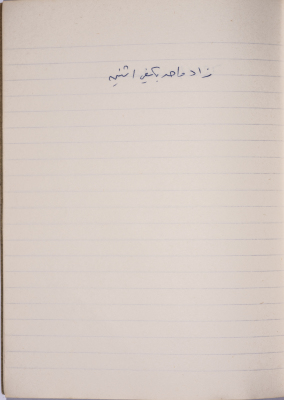 زاد واحد يكفي اثنين